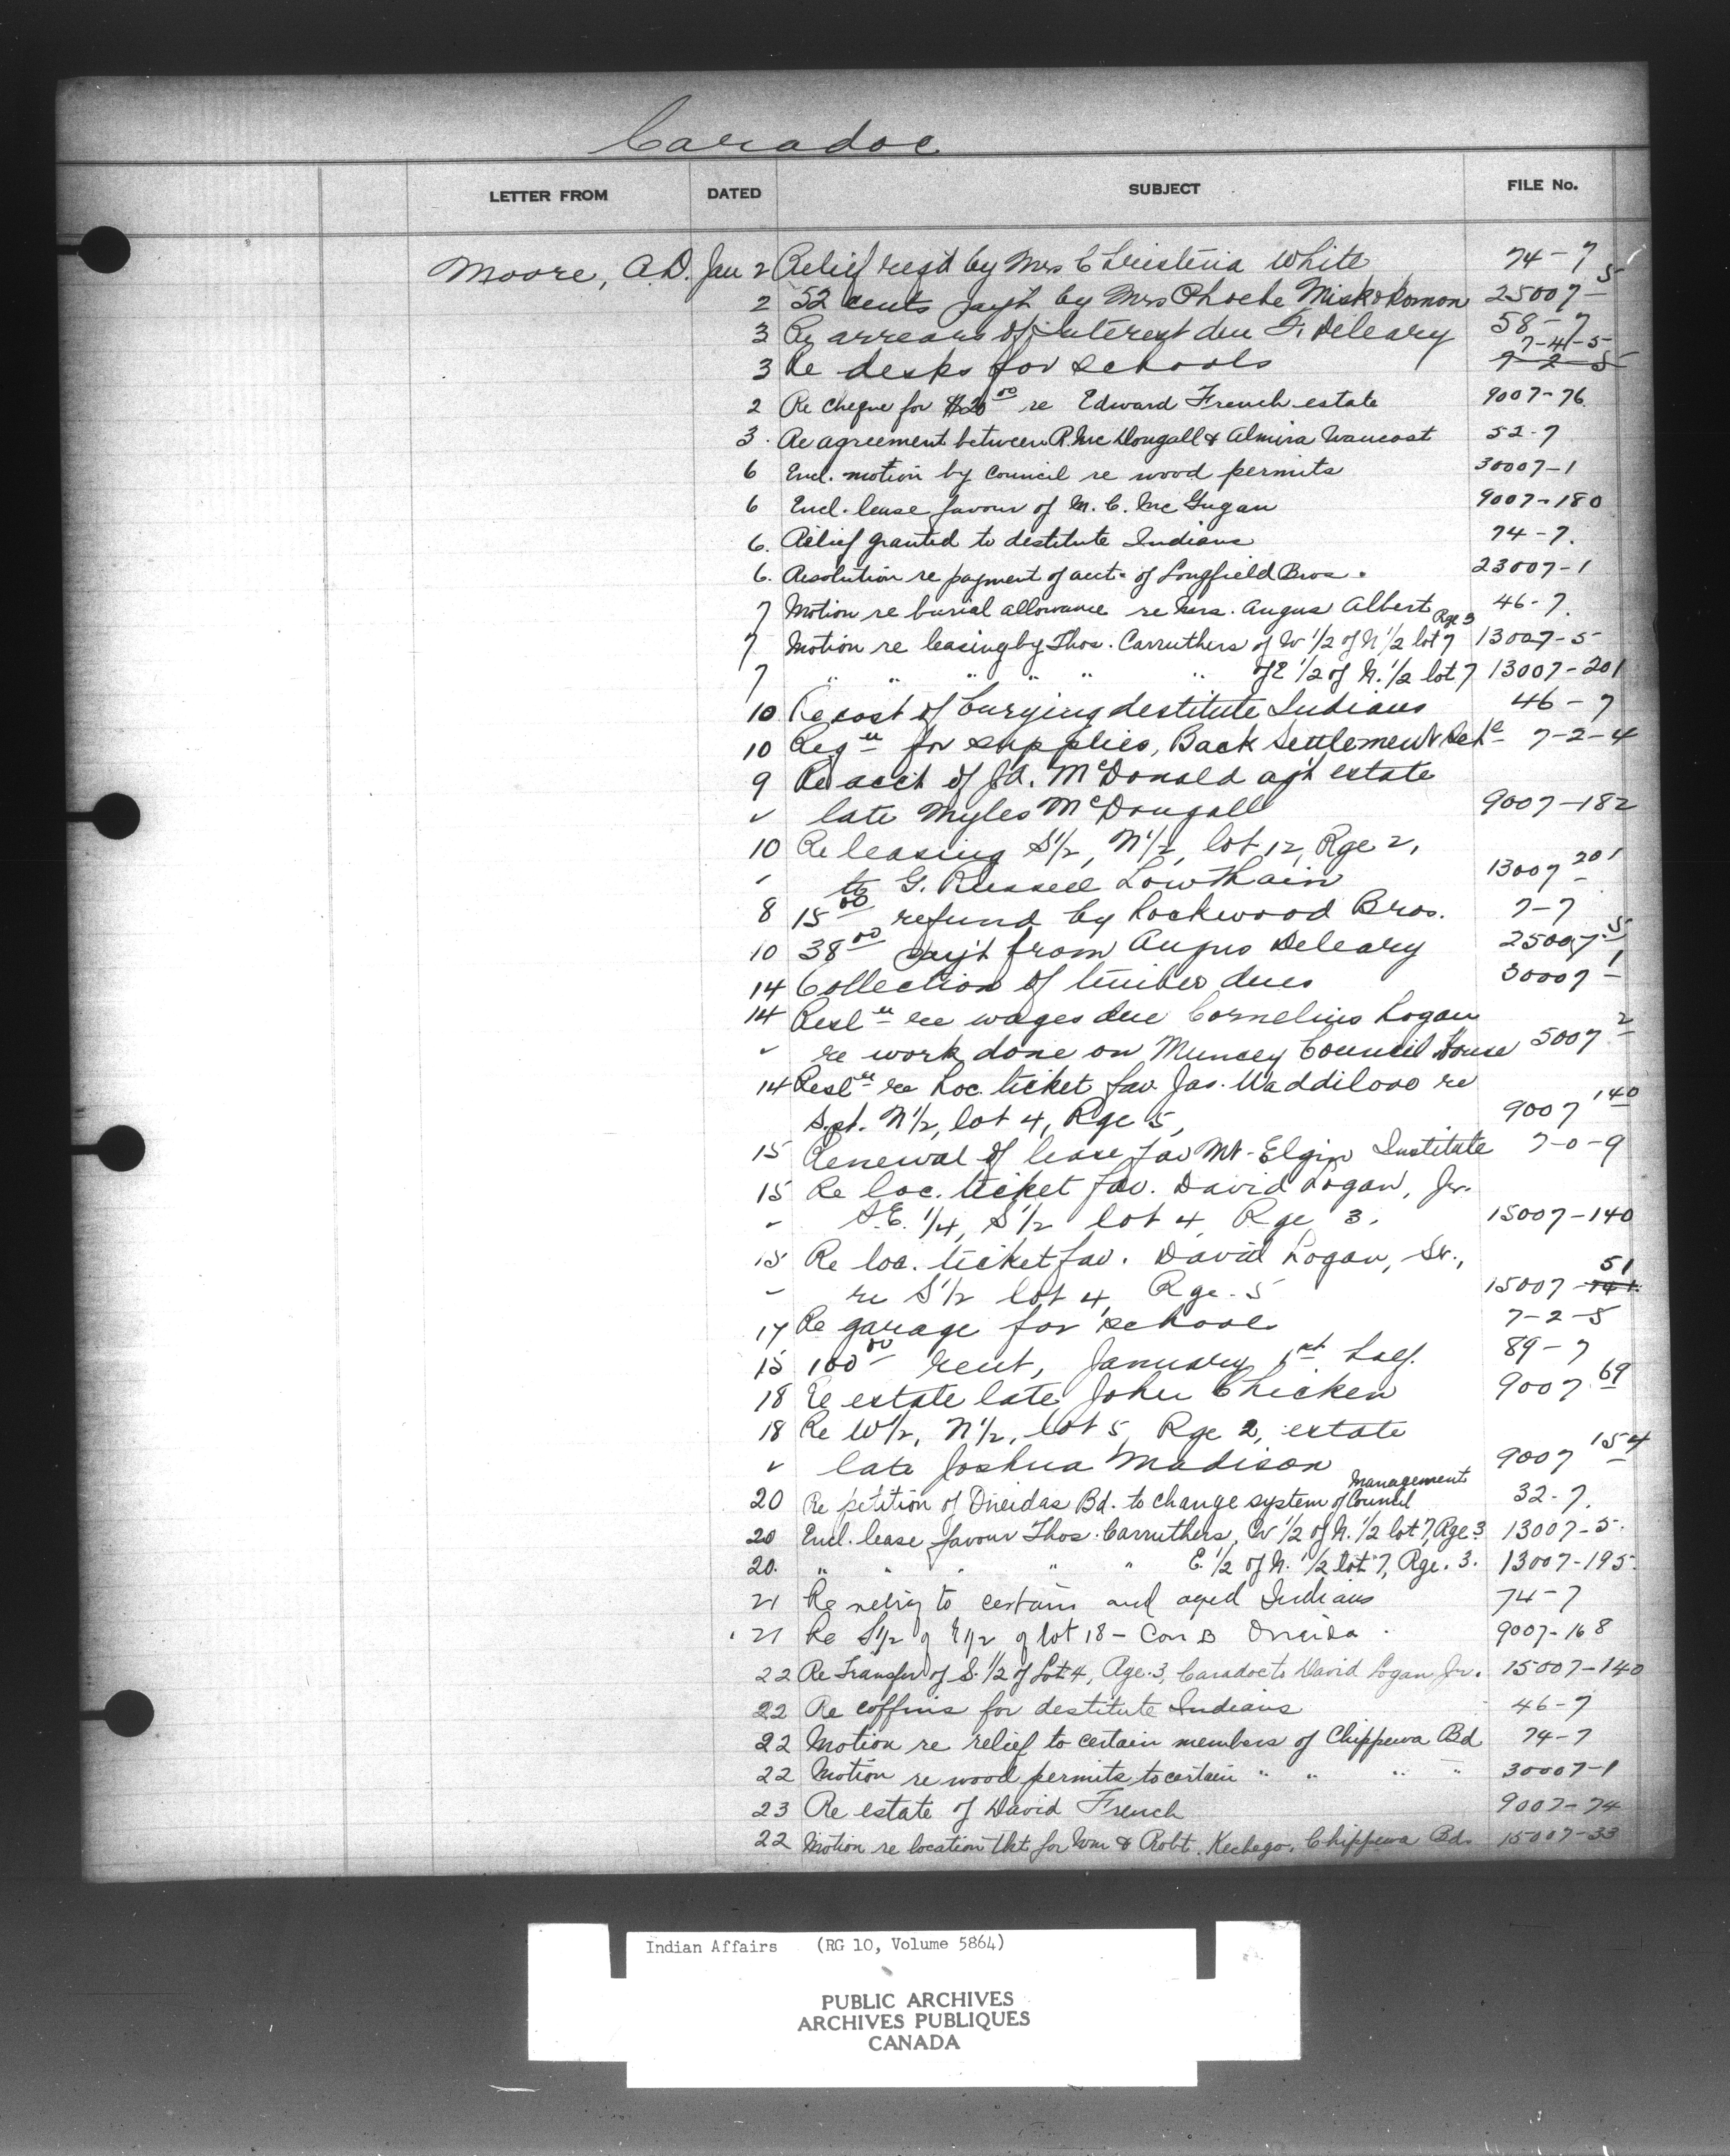 Caradoc
LETTER FROM DATED SUBJECT FILE No.
Moore, A.D. Jan 2 Relief reqd by Mrs Christina White 74-7
2 52 cents pay't by Mrs Phoebe Miskokomon 25007-5
3 Re arrears of interest due F. Deleary 58-7
7-4-5
3 Re desks for schools 7-2-5
2 Re cheque for $20 00 re Edward French estate 9007-76
3. Re agreement between R. McDougall & Almira Waucost 52-7
6 Encl. motion by council re wood permits 30007-1
6 Encl. lease favour of M. C. McGugan 9007-180
6. Relief granted to destitute Indians 74-7.
6. Resolution re payment of acct. of Longfield Bros. 23007-1
7 Motion re burial allowance re Mrs. Angus Albert 46-7.
Rge 3
7 Motion re leasing by Thos. Carruthers of W 1/2 of N 1/2 lot 7 13007-5
7 " " " " " " of E 1/2 of N. 1/2 lot 7 13007-201
10 Re cost of burying destitute Indians 46-7
10 Reqn for supplies, Back Settlement Schl 7-2-4
9 Re acc't of J.A. McDonald ag't estate
✓ late Myles McDougall 9007-182
10 Re leasing S1/2, N1/2, lot 12, Rge 2,
to G. Russell Lowthain 13007-201
8 15 00 refund by Lockwood Bros. 7-7
10 38 00 pay't from Angus Deleary 25007-5
14 Collection of timber dues 30007-1
14 Resln re wages due Cornelius Logan
✓ re work done on Muncey Council House 5007-2
14 Resln re Loc. ticket fav. Jas. Waddilove re
S. pt. N1/2, lot 4, Rge 5, 9007-140
15 Renewal of lease fav Mt-Elgin Institute 7-0-9
15 Re loc. ticket fav. David Logan, Jr.
S.E. 1/4, S1/2 lot 4, Rge 3. 15007-140
15 Re loc. ticket fav. David Logan, Sr.,
51
re S1/2 lot 4, Rge. 5 15007-141
17 Re garage for school 7-2-5
15 100 00 rent, January 1st half. 89-7
18 Re estate late John Chicken 9007-69
18 Re W1/2, N1/2, lot 5, Rge 2, estate
✓ late Joshua Madison 9007-154
Management
20 Re petition of Oneidas Bd. to change system of Council 32-7.
20 Encl. lease favour Thos. Carruthers, W 1/2 of N. 1/2 lot 7, Rge 3 13007-5.
20. " " " " " E. 1/2 of N. 1/2 lot 7, Rge. 3. 13007-195.
21 Re relief to certain and aged Indians 74-7
21 Re S1/2 of E1/2 of lot 18 - Con B Oneida 9007-168
22 Re Transfer of S. 1/2 of Lot 4, Rge. 3, Caradoc to David Logan Jr. 15007-140
22 Re coffins for destitute Indians 46-7
22 Motion re relief to certain members of Chippewa Bd 74-7
22 Motion re wood permits to certain " " " " 30007-1
23 Re estate of David French 9007-74
22 Motion re location tkt for Wm & Robt. Kechego, Chippewa Bd. 15007-33
Indian Affairs (RG 10, Volume 5864)
PUBLIC ARCHIVES
ARCHIVES PUBLIQUES
CANADA